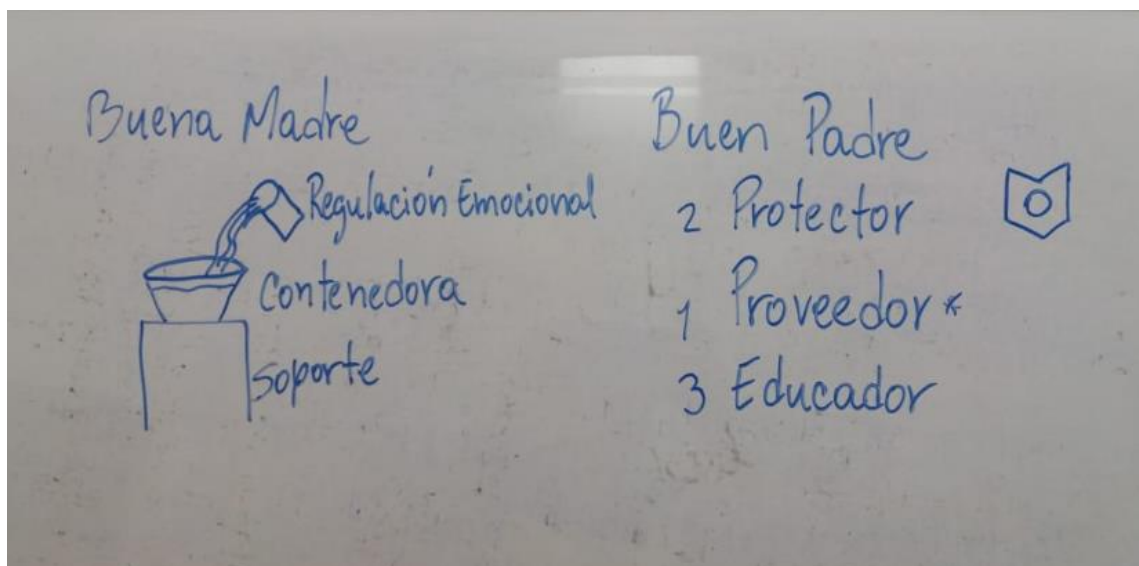 Buena Madre
Regulación Emocional
Contenedora
Soporte
Buen Padre
2 Protector
1 Proveedor*
3 Educador